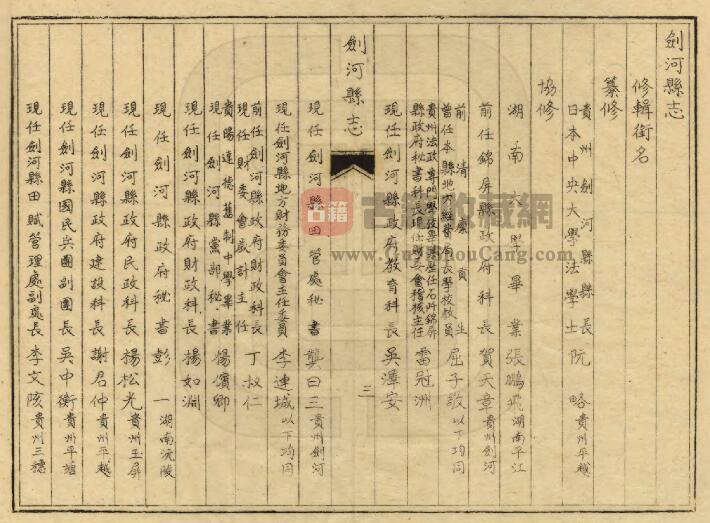 劍河縣志
修輯銜名
纂修
貴州劍河縣縣長
日本中央大學法學士阮略貴州平越
協修
湖南 學畢業張鵬飛湖南平江
前任錦屏縣政府科長賀天章貴州劍河
前清 貢生
曾任本縣地方經 局長學校教員屈子敬以下均同
貴州法政專門學校畢業歷任石阡錦屏
縣政府秘書科長現任財委會稽核主任雷冠洲
現任劍河縣政府教育科長吳漳安
劍河縣志
三
現任劍河縣田管處秘書龔曰三貴州劍河
現任劍河縣地方財務委員會主任委員李連城以下均同
前任劍河縣政府財政科長
現任財委會歲計主任丁叔仁
貴陽達德舊制中學畢業
現任劍河縣黨部秘書楊濱卿
現任劍河縣政府財政科長楊如淵
現任劍河縣政府秘書彭一湖南沅陵
現任劍河縣政府民政科長楊松光貴州玉屏
現任劍河縣政府建設科長謝君仲貴州平越
現任劍河縣國民兵團副團長吳中衡貴州平塘
現任劍河縣田賦管理處副處長李文陔貴州三穗
古籍
收藏網